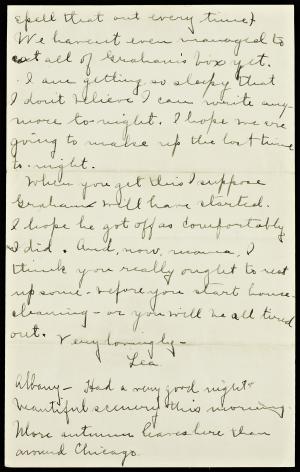 spell that out every time?
We haven't even managed to
eat all of Graham's box yet.
I am getting so sleepy that
I don't believe I can write any-
more to-night. I hope we are
going to make up the lost time
to-night.
When you get this I suppose
Graham will have started.
I hope he got off as comfortably
as I did. And, now, mama, I
think you really ought to rest
up some - before you start house-
cleaning - or you will be all tired
out. Very lovingly -
Lea.
Albany - Had a very good night +
beautiful scenery this morning.
More autumn leaves here than
around Chicago.